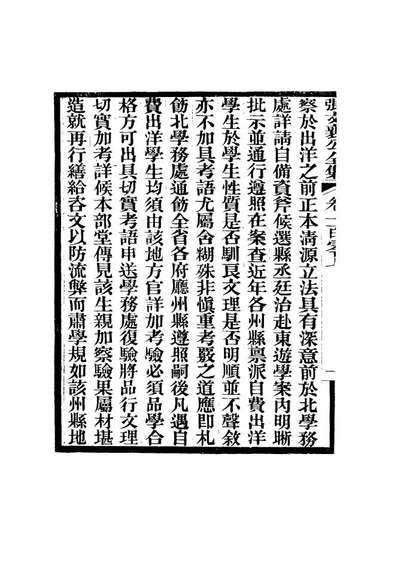 張文襄公全集 卷一百零 一
察於出洋之前正本淸源立法具有深意前於北學務
處詳請自備資斧候選縣丞廷治赴東遊學案內明晰
批示並通行遵照在案查近年各州縣稟派自費出洋
學生於學生性質是否馴良文理是否明順並不聲敘
亦不加具考語尤屬含糊殊非愼重考覈之道應卽札
飭北學務處通飭全省各府廳州縣遵照嗣後凡遇自
費出洋學生均須由該地方官詳加考驗必須品學合
格方可出具切實考語申送學務處復驗將品行文理
切實加考詳候本部堂傳見該生親加察驗果屬材堪
造就再行繕給咨文以防流弊而肅學規如該州縣地